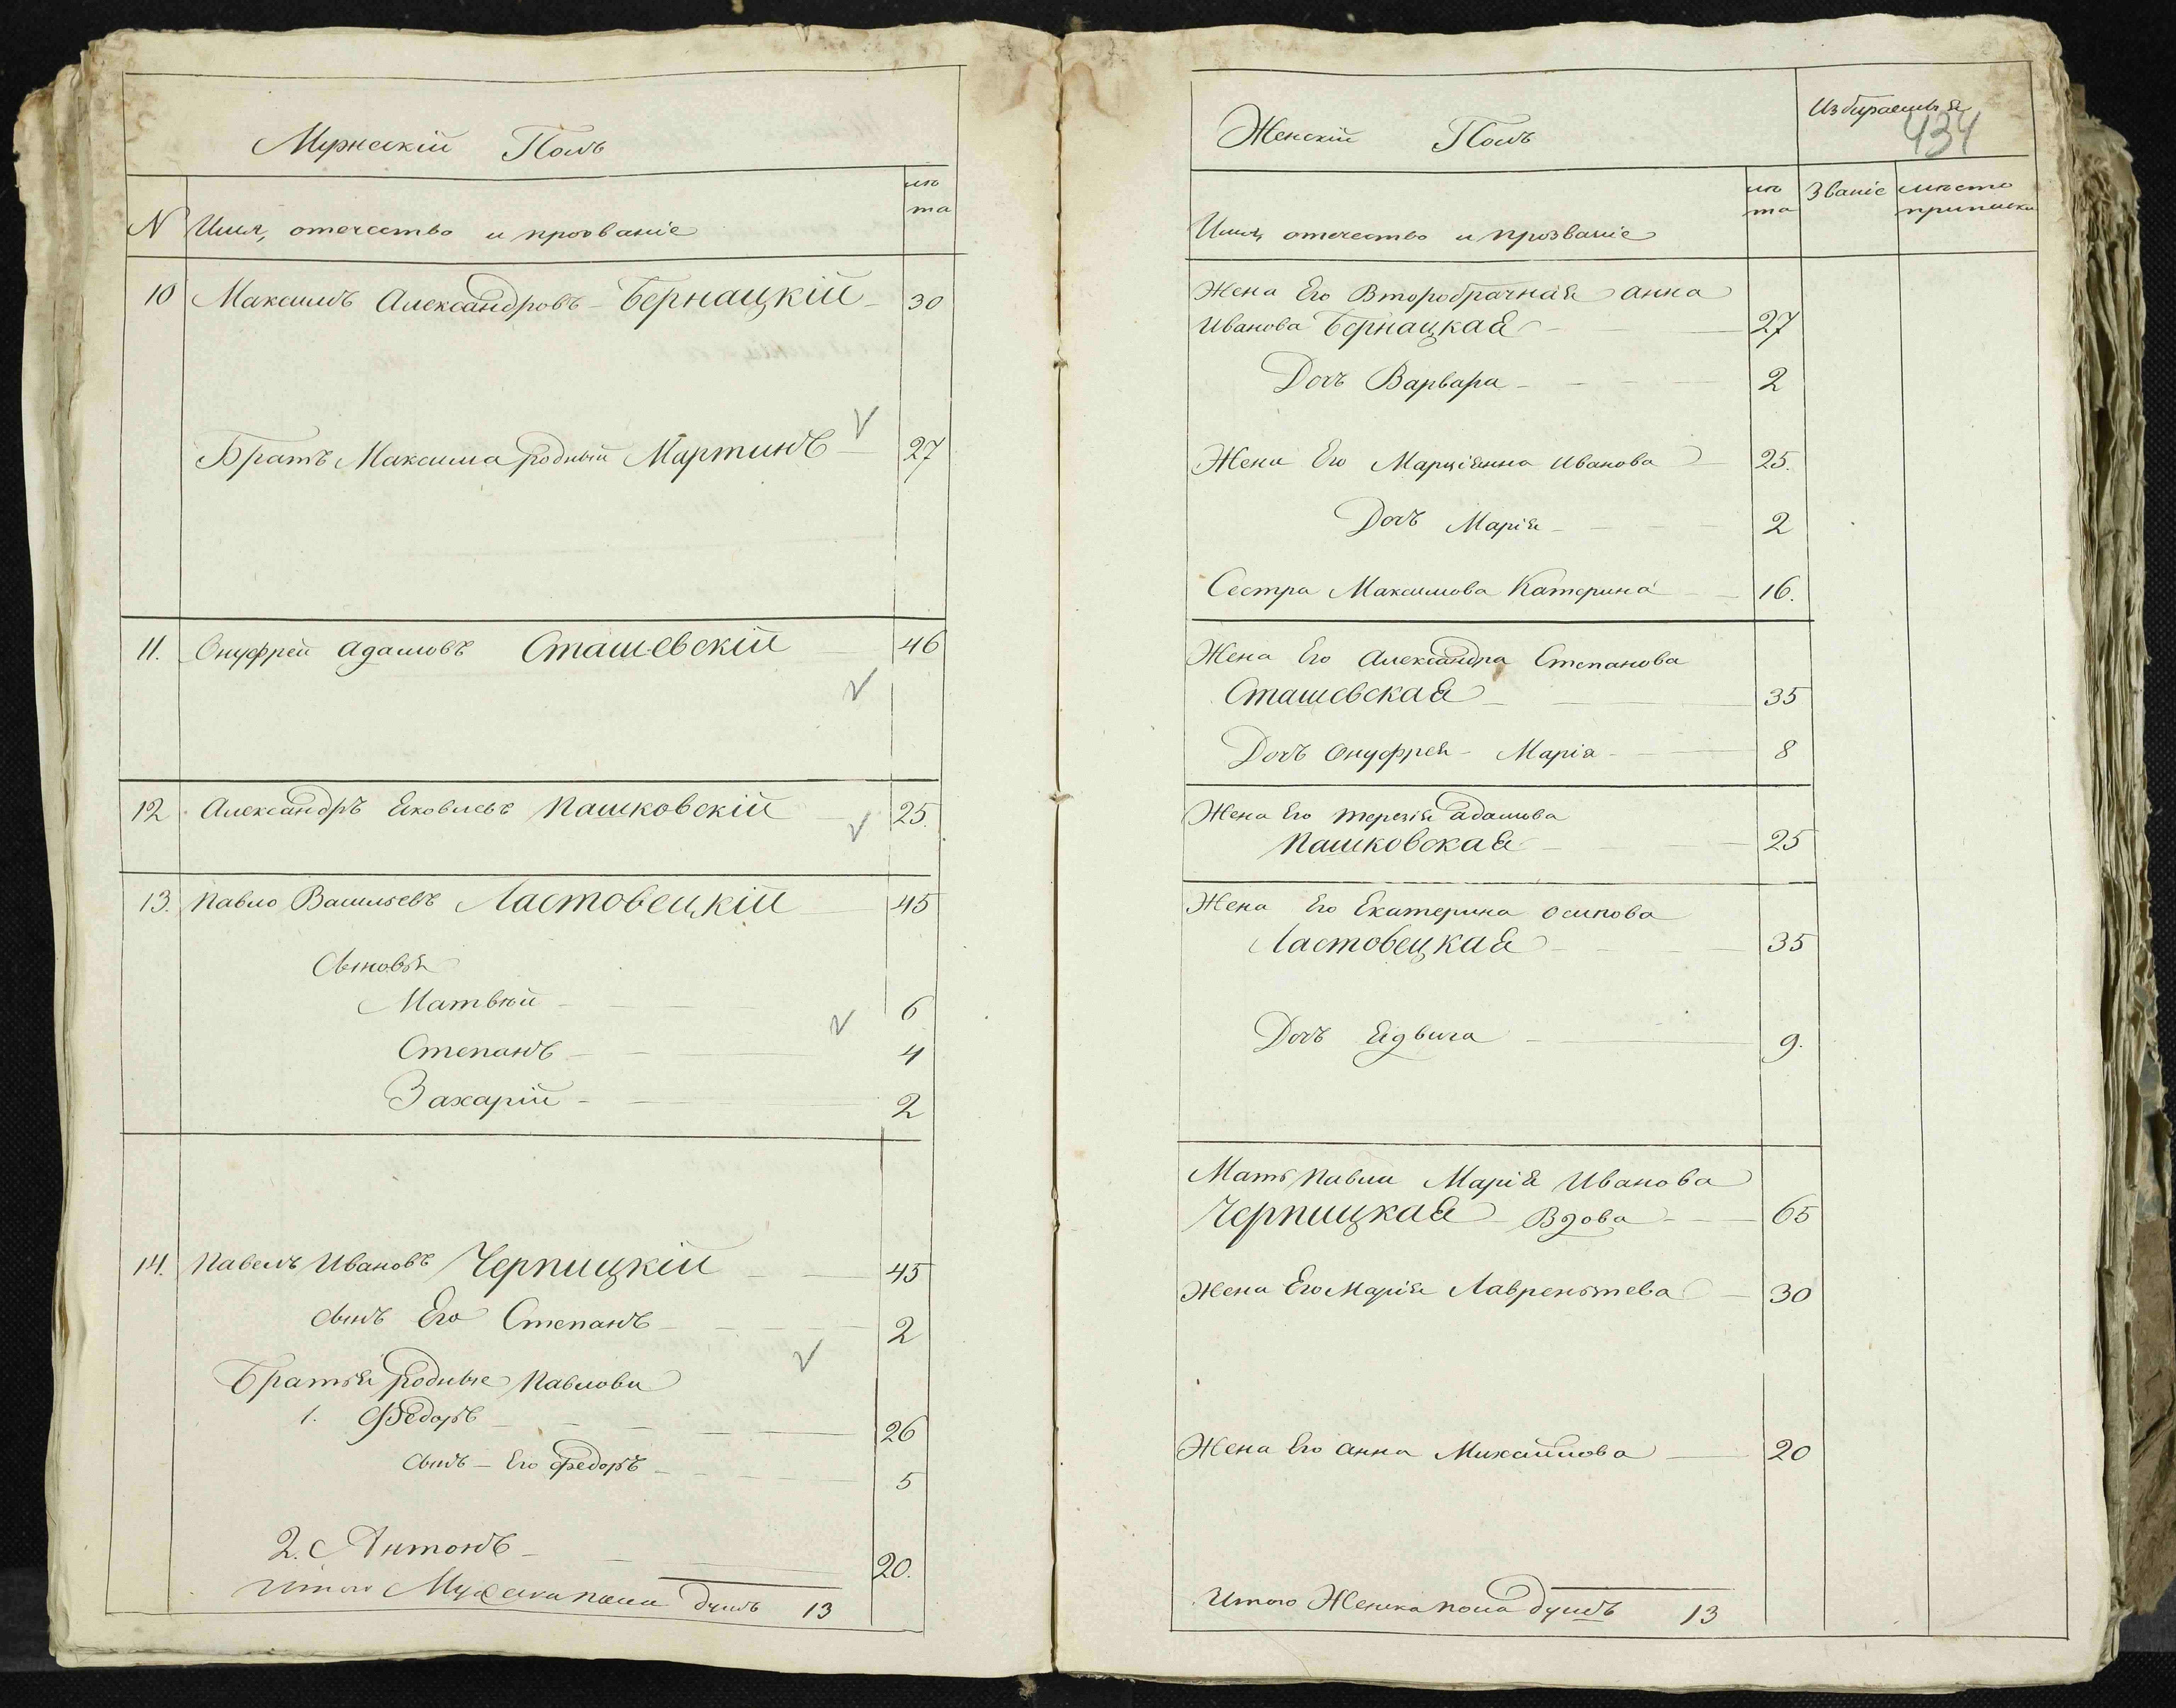 Мужескій Полъ
N Имя, отечество и прозваніе
лѣ
та
10 Максимъ Александровъ Бернацкій 30
Братъ Максима родный Мартинъ 27
11. Онуфрей Адамовъ Сташевскій 46
12 Александръ Яковлевъ Пашковскій 25.
13. Павло Васильевъ Ластовецкій 45
Сыновья
Матвѣй 6
Степанъ 4
Захарій 2
14. Павелъ Ивановъ Черпицкій 45
сынъ Его Степанъ 2
Братья родные Павлови
1. Ѳедоръ 26
сынъ Его Федоръ 5
2. Антонъ 20.
Итого Мужеска пола душъ 13
Женскій Полъ
Избираемыя
434
Имя, отечество и прозваніе
лѣ
та
Званіе
мѣсто
приписки
Жена Его Второбрачная Анна
Иванова Бернацкая 27
Дочь Варвара 2
Жена Его Марціянна Иванова 25.
Дочь Марія 2
Сестра Максимова Катерина 16.
Жена Его Александра Степанова
Сташевская 35
Дочь Онуфрея Марія 8
Жена Его Терезія Адамова
Пашковская 25
Жена Его Екатерина Осипова
Ластовецкая 35
Дочь Ядвига 9.
Мать Павла Марія Иванова
Черпицкая Вдова 65
Жена Его Марія Лаврентьева 30
Жена Его Анна Михайлова 20
Итого Женска пола душъ 13